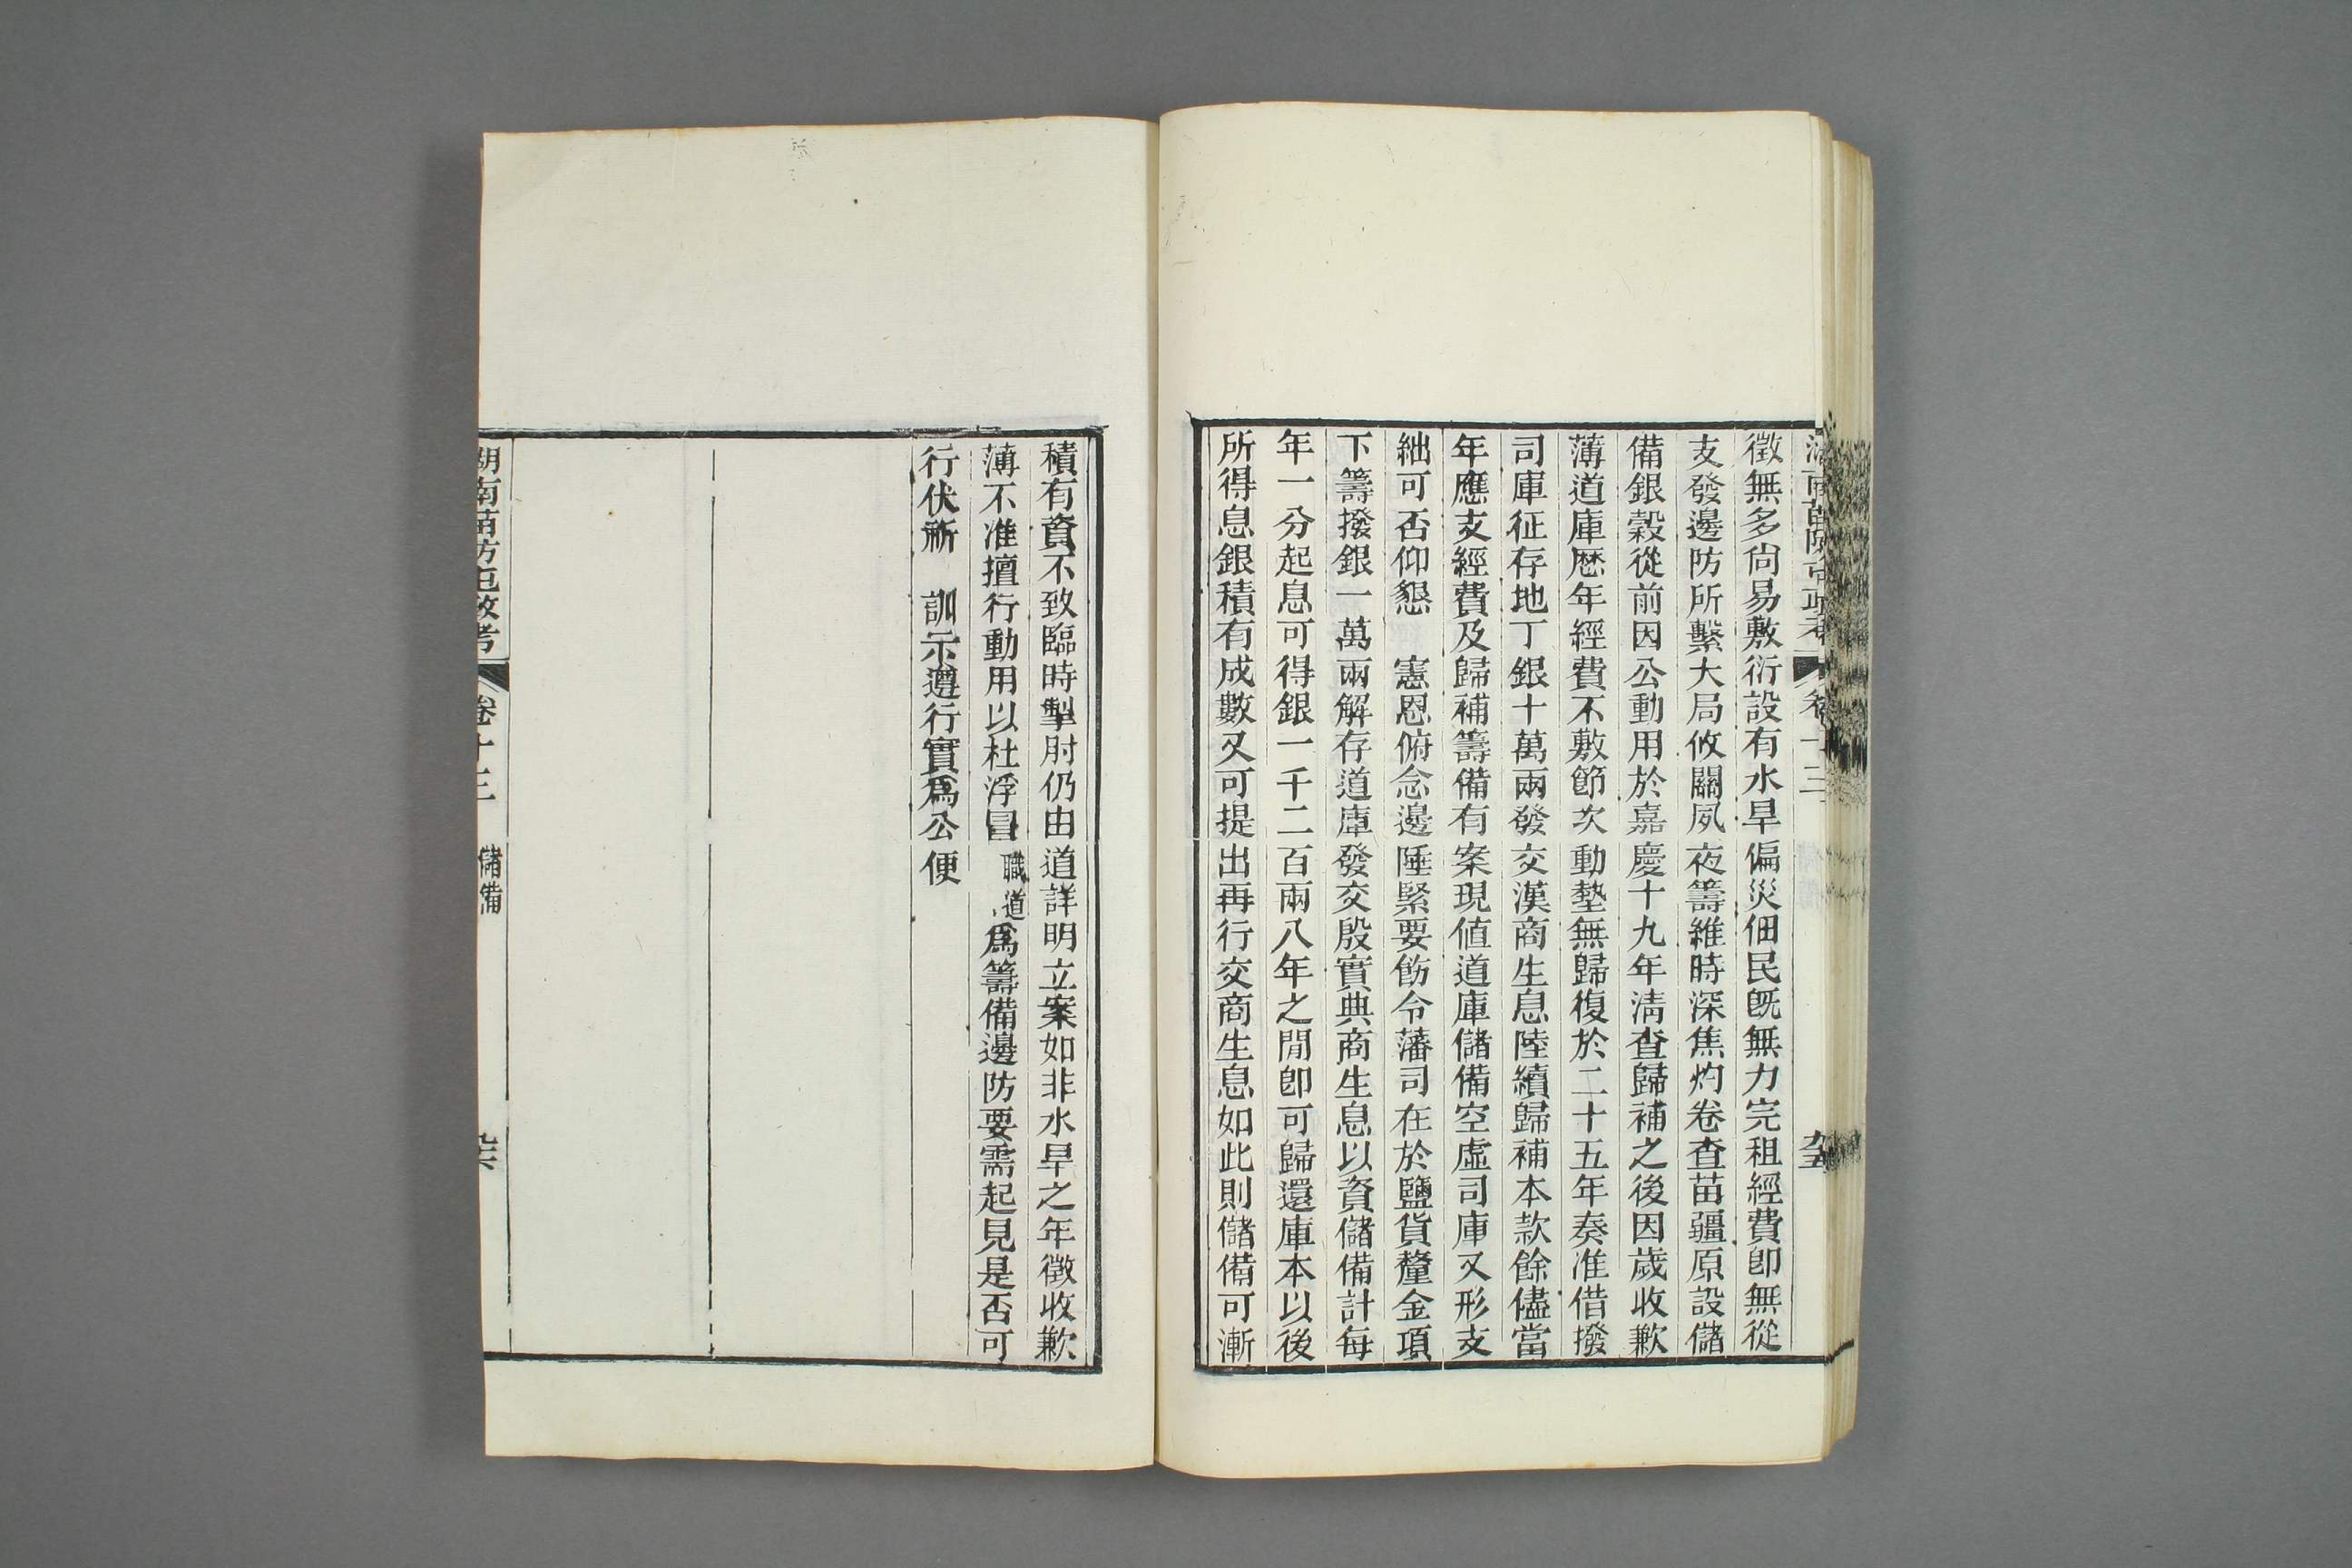 徵無多尙易敷衍設有水旱偏災佃民旣無力完租經費卽無從
支發邊防所繫大局攸關夙夜籌維時深焦灼卷查苗疆原設儲
備銀穀從前因公動用於嘉慶十九年淸查歸補之後因歲收歉
薄道庫歷年經費不敷節次動墊無歸復於二十五年奏准借撥
司庫征存地丁銀十萬兩發交漢商生息陸續歸補本款餘儘當
年應支經費及歸補籌備有案現值道庫儲備空虛司庫又形支
絀可否仰懇　憲恩俯念邊陲緊要飭令藩司在於鹽貨釐金項
下籌撥銀一萬兩解存道庫發交殷實典商生息以資儲備計每
年一分起息可得銀一千二百兩八年之閒卽可歸還庫本以後
所得息銀積有成數又可提出再行交商生息如此則儲備可漸
積有資不致臨時掣肘仍由道詳明立案如非水旱之年徵收歉
薄不准擅行動用以杜浮冒職道爲籌備邊防要需起見是否可
行伏祈　訓示遵行實爲公便
湖南苗防屯政考　卷十三　儲備